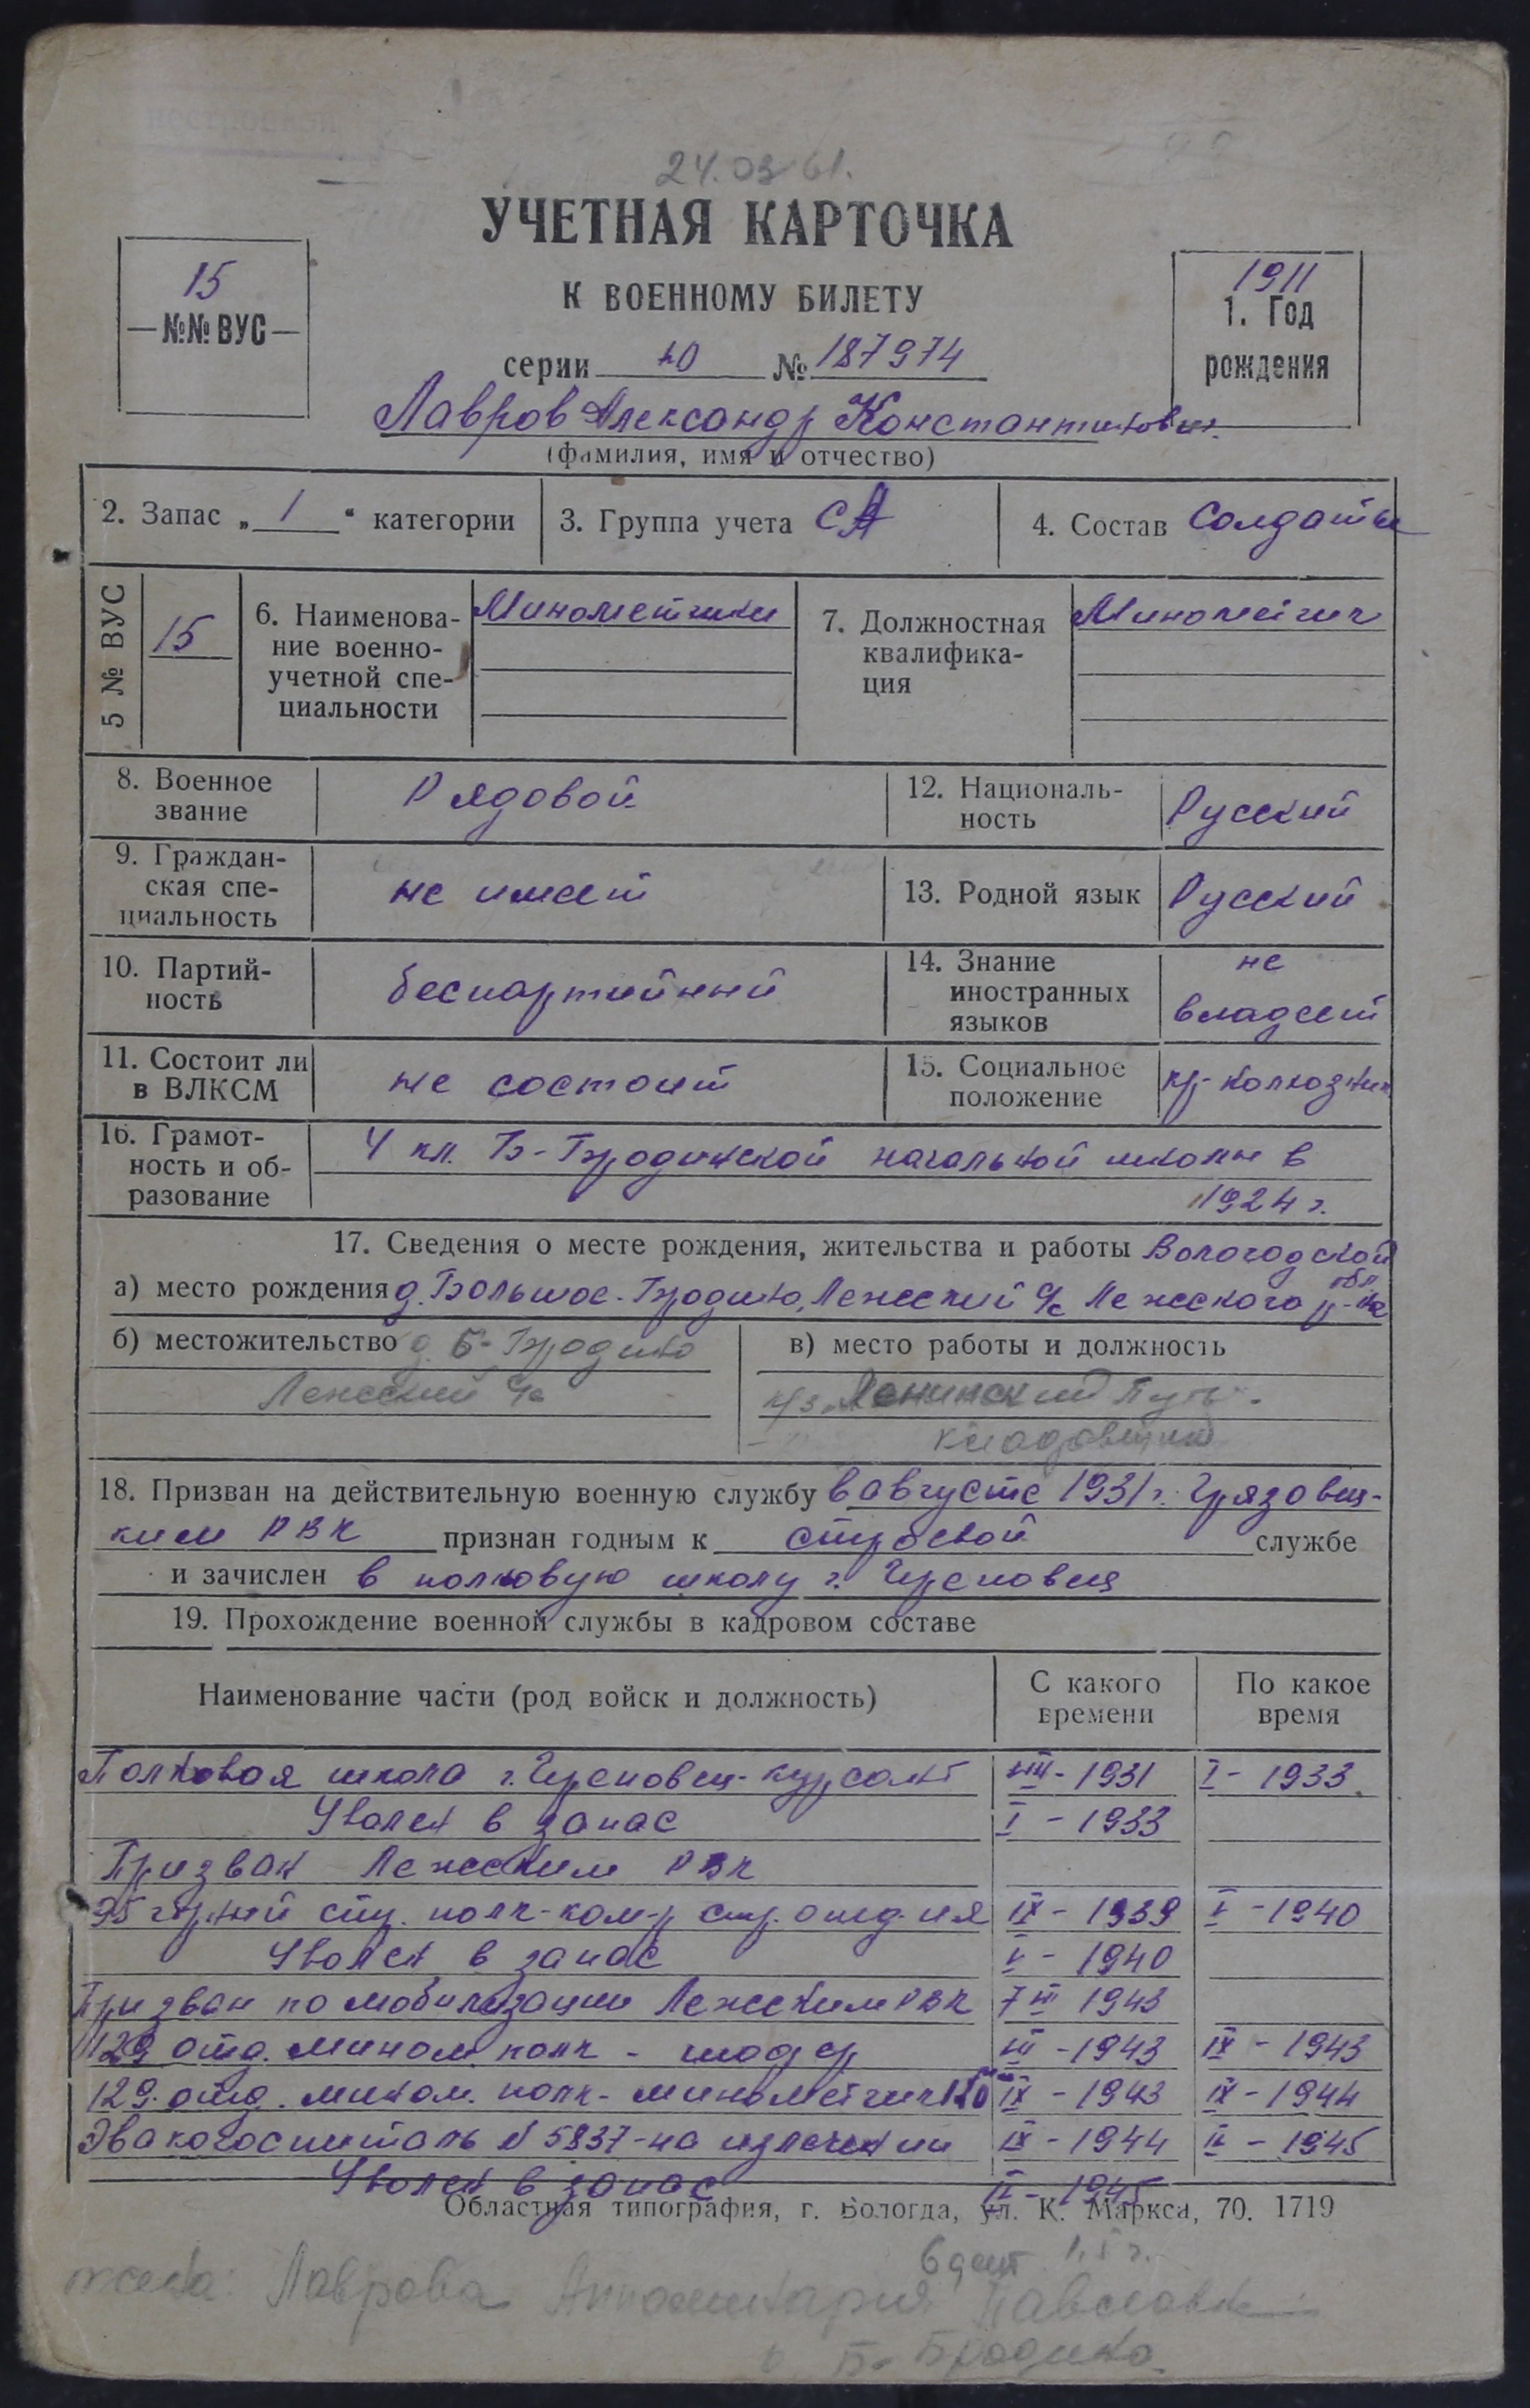 24.03.61.
УЧЕТНАЯ КАРТОЧКА
К ВОЕННОМУ БИЛЕТУ
15
№№ ВУС
1911
1. Год
рождения
серии № 187974
Лавров Александр Константинович
(фамилия, имя и отчество)
2. Запас „1“ категории
3. Группа учета СА
4. Состав Солдаты
5 № ВУС 15
6. Наименова-
ние военно-
учетной спе-
циальности
Минометчики
7. Должностная
квалифика-
ция
Минометчик
8. Военное
звание
Рядовой
12. Националь-
ность
Русский
9. Граждан-
ская спе-
циальность
не имеет
13. Родной язык Русский
10. Партий-
ность
беспартийный
14. Знание
иностранных
языков
не
владеет
11. Состоит ли
в ВЛКСМ
не состоит
15. Социальное
положение
кр-колхозник
16. Грамот-
ность и об-
разование
4 кл. Б-Бродинской начальной школы в
1924 г.
17. Сведения о месте рождения, жительства и работы Вологодской
обл
а) место рождения д. Большое-Бродино, Лежский с/с Лежского р-на
б) местожительство д. Б-Бродино
Лежский с/с
в) место работы и должность
к/з Ленинский Путь
кладовщик
18. Призван на действительную военную службу в августе 1931 г. Грязовец-
ким РВК признан годным к строевой службе
и зачислен в полковую школу г. Череповец
19. Прохождение военной службы в кадровом составе
Наименование части (род войск и должность)
С какого
времени
По какое
время
Полковая школа г. Череповец-курсант VIII-1931 I-1933
Уволен в запас I-1933
Призван Лежским РВК
95 горный стр. полк-ком-р стр. отд-ия IX-1939 V-1940
Уволен в запас V-1940
Призван по мобилизации Лежским РВК 7 III 1943
129 отд. мином. полк - шофер III-1943 IX-1943
129. отд. мином. полк- минометчик 120 мм IX-1943 IX-1944
Эвакогоспиталь N 5837-на излечении IX-1944 II-1945
Уволен в запас II-1945
Областная типография, г. Вологда, ул. К. Маркса, 70. 1719
жена: Лаврова Апполинария Павловна
Б-Бродино.